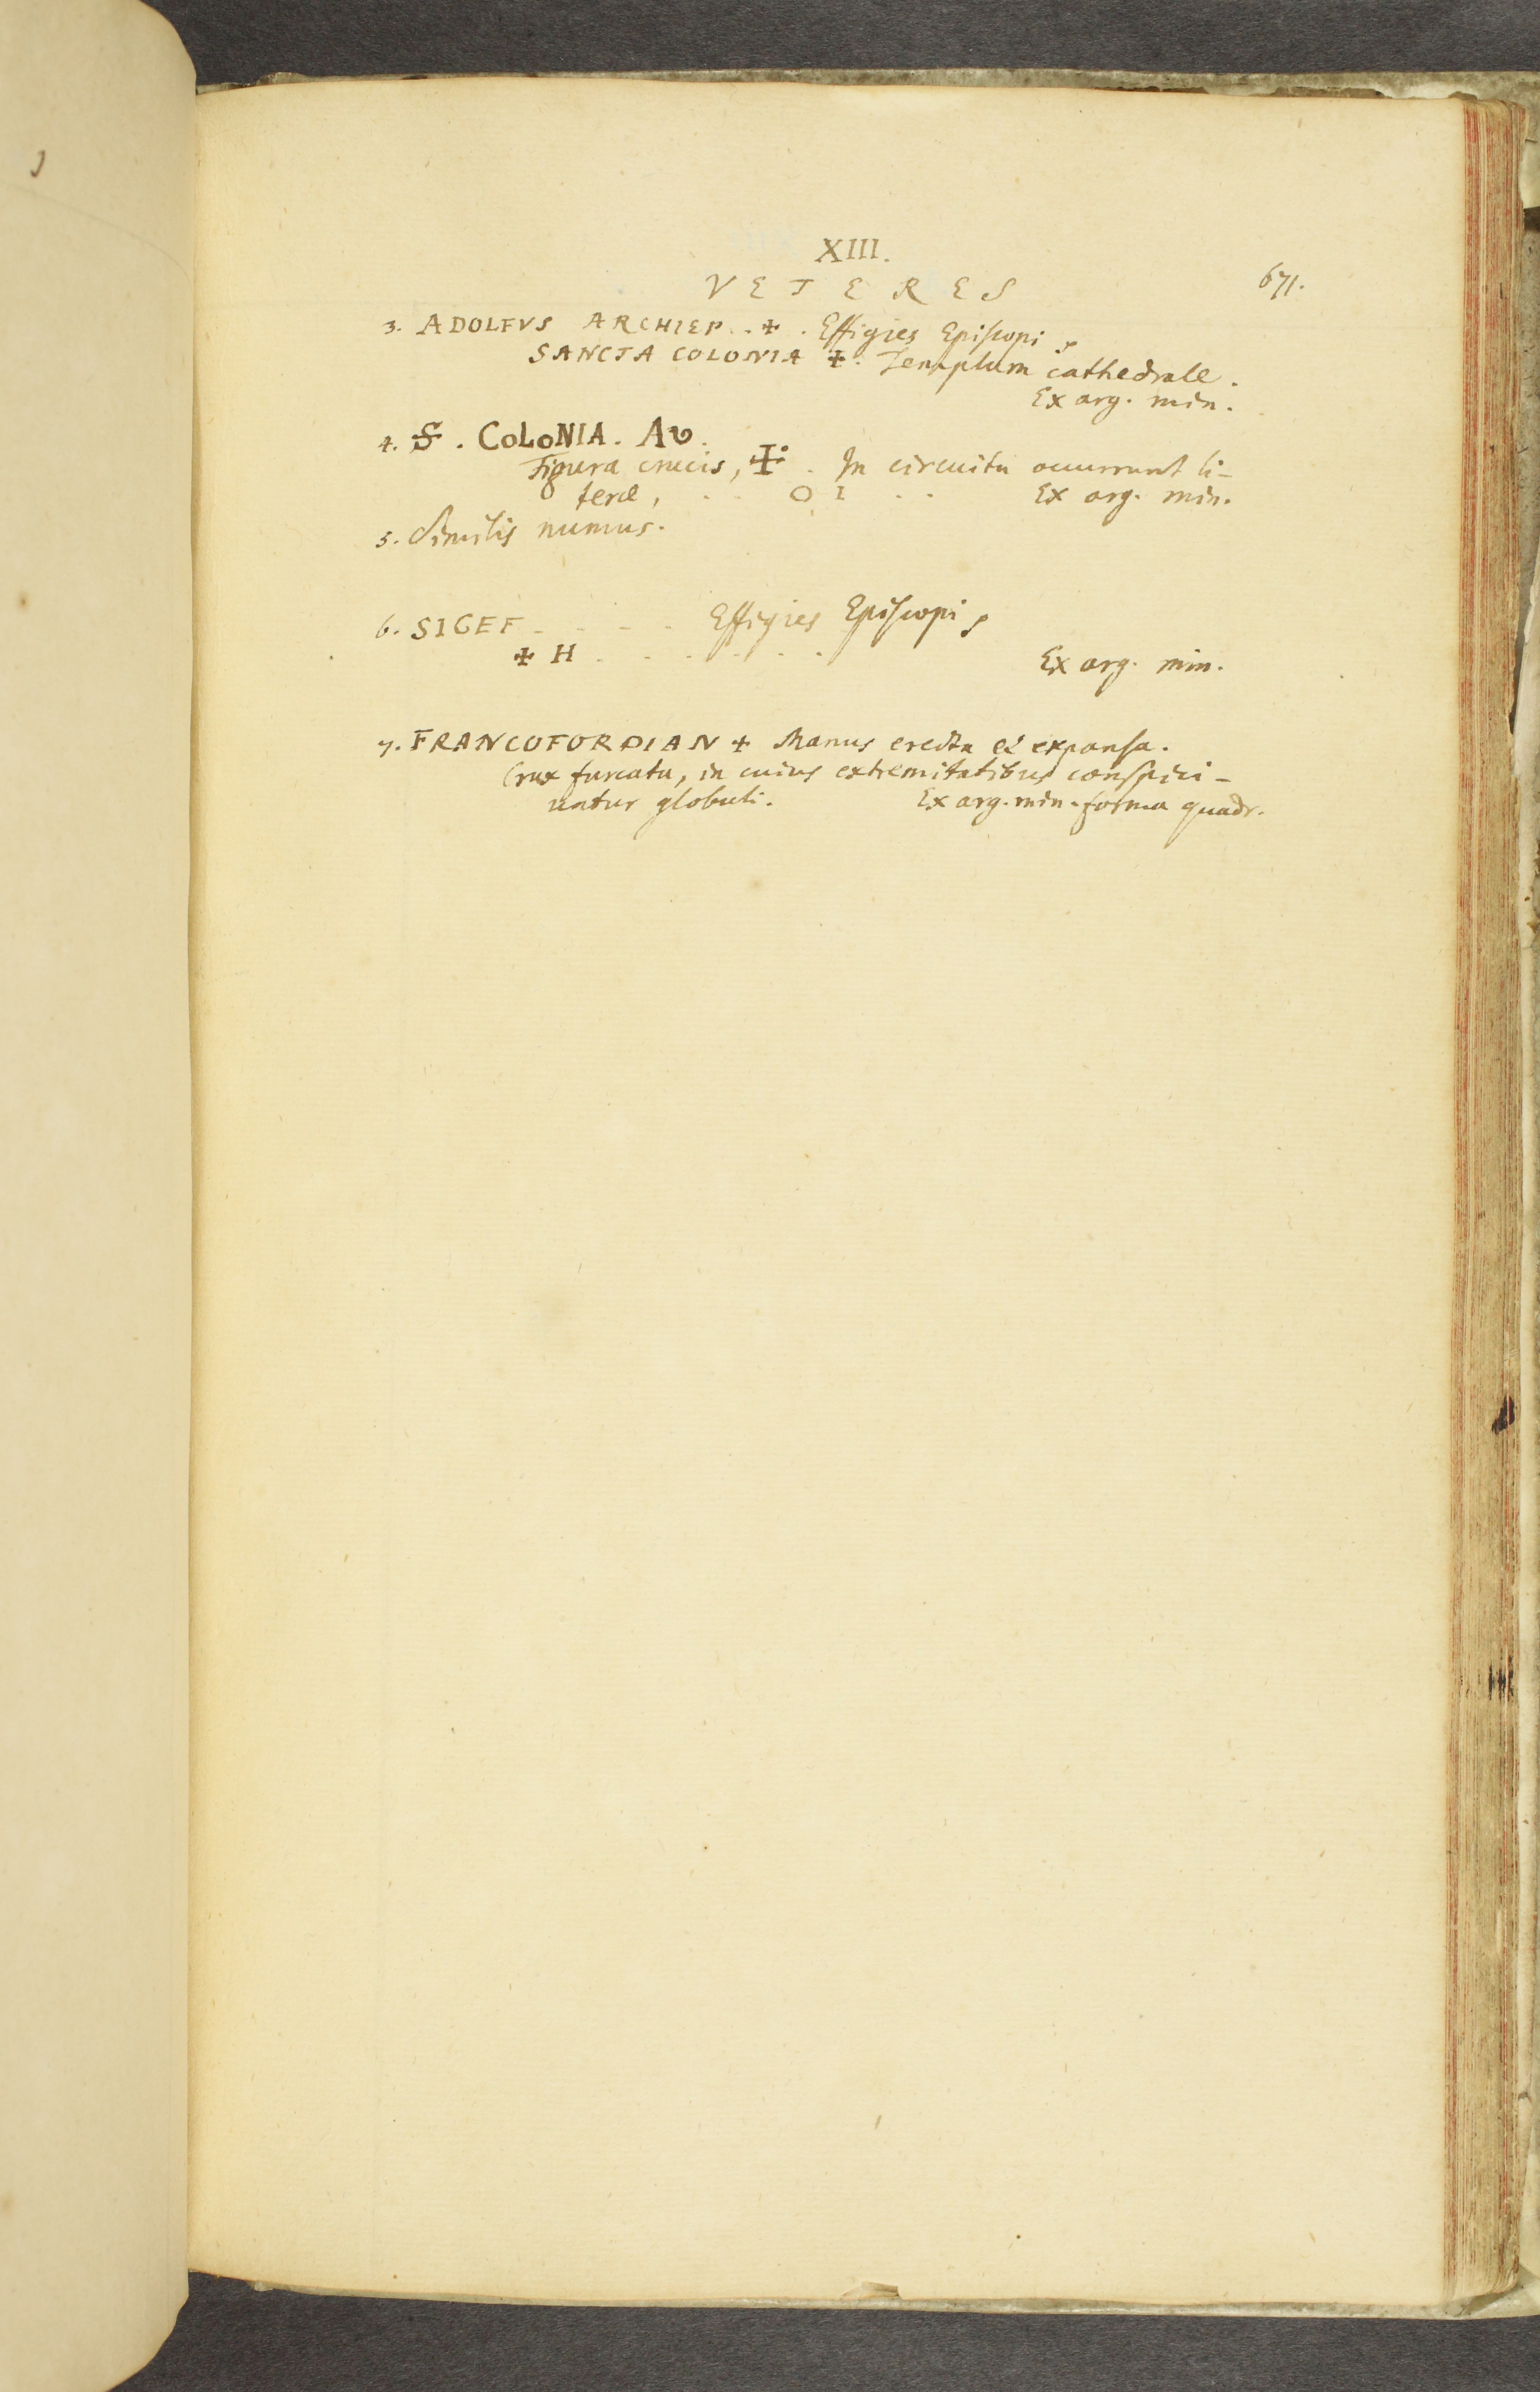 XIII.
VETERES
671.
3. ADOLFVS ARCHIEP. . ✠ . Effigies Episcopi
SANCTA COLONIA ✠. Templum cathedrale.
Ex arg. min.
4. S. COLONIA. A.
Figura crucis, ✠ . In circuitu occurrunt li-
teræ, . . O I . . Ex arg. min.
5. Similis numus.
6. SIGEF - - - - Effigies Episcopi
✠ H . . . . . . Ex arg. min.
7. FRANCOFORDIAN + Manus erecta et expansa.
Crux furcata, in cuius extremitatibus conspici-
untur globuli. Ex arg. min. forma quadr.